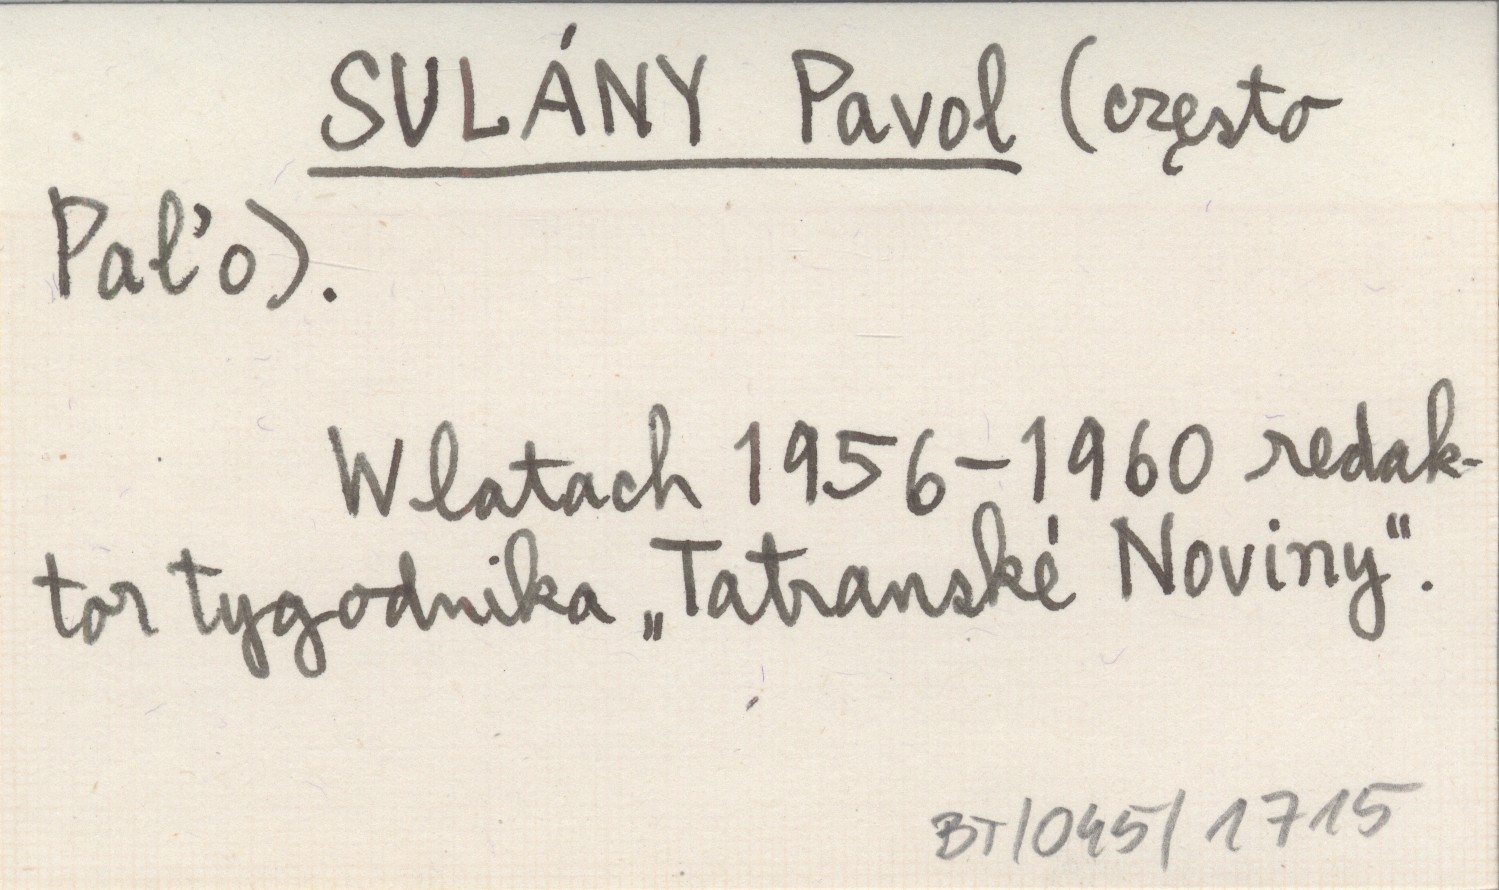 SULÁNY Pavol (często
Pal'o).
W latach 1956-1960 redak-
tor tygodnika „Tatranské Noviny".
BT/045/1715